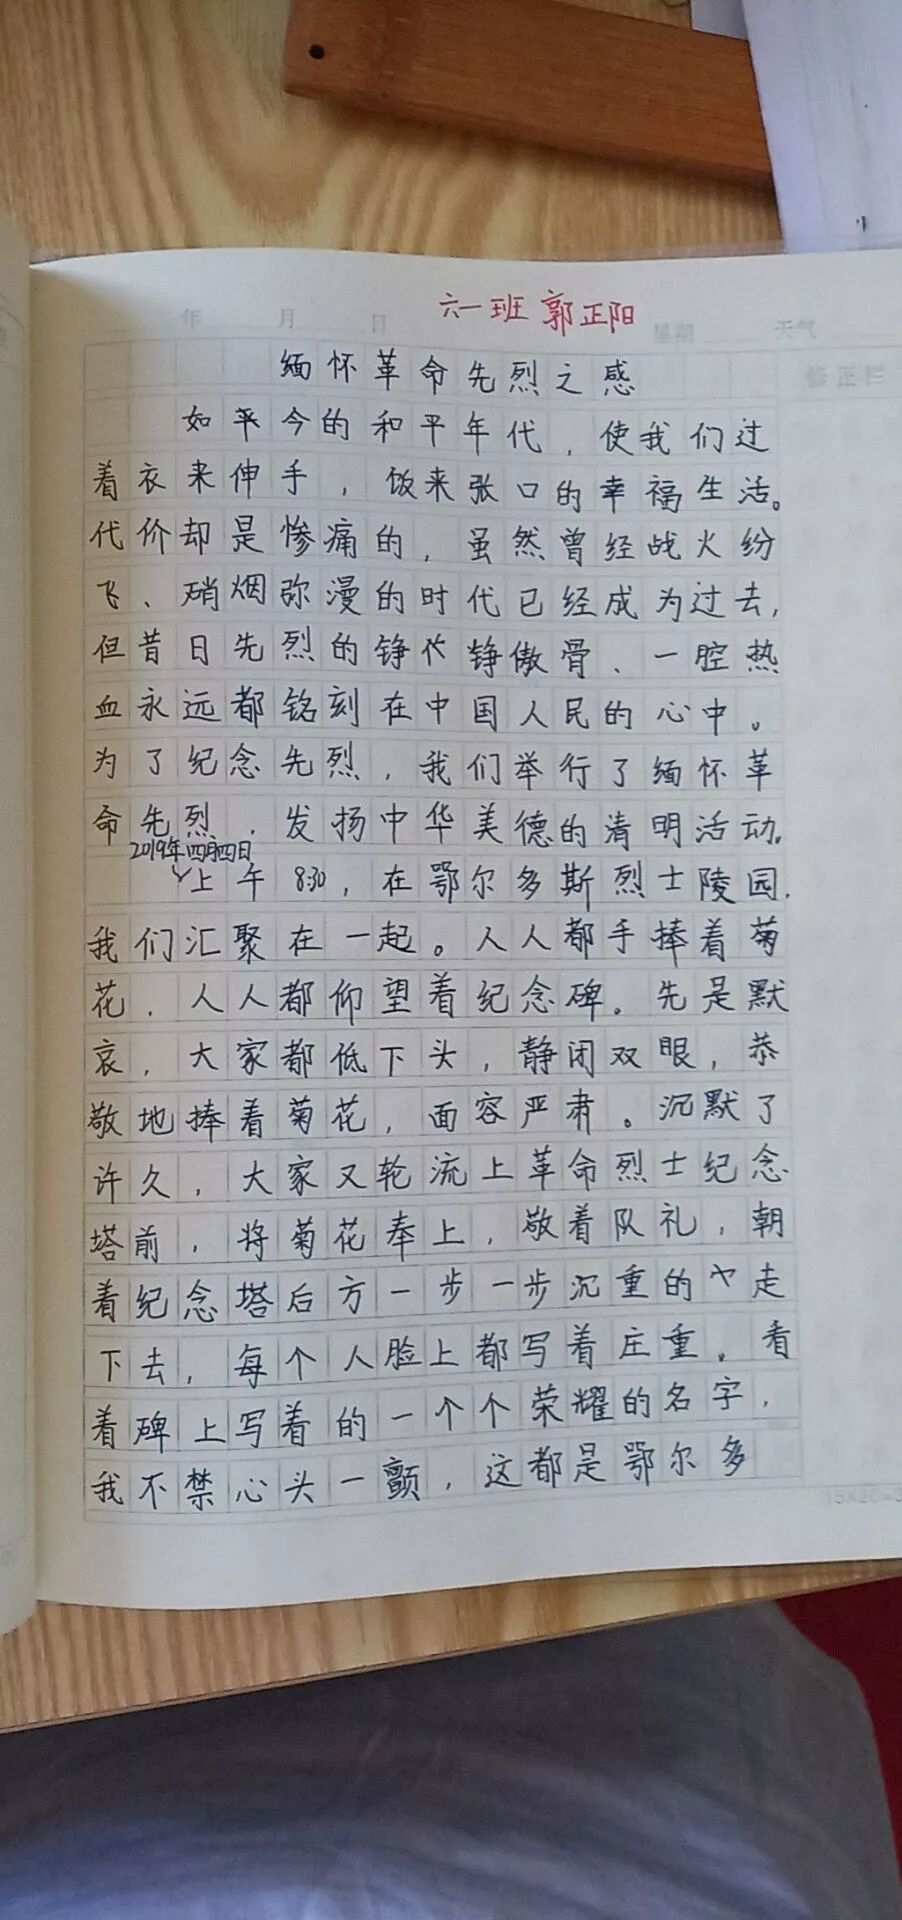 六一班 郭正阳
年 月 日 星期 天气
修正栏
缅怀革命先烈之感
如今的和平年代，使我们过
着衣来伸手，饭来张口的幸福生活。
代价却是惨痛的，虽然曾经战火纷
飞、硝烟弥漫的时代已经成为过去，
但昔日先烈的铮铮傲骨、一腔热
血永远都铭刻在中国人民的心中。
为了纪念先烈，我们举行了缅怀革
命先烈，发扬中华美德的清明活动。
2019年四月四日
上午8:30，在鄂尔多斯烈士陵园，
我们汇聚在一起。人人都手捧着菊
花，人人都仰望着纪念碑。先是默
哀，大家都低下头，静闭双眼，恭
敬地捧着菊花，面容严肃。沉默了
许久，大家又轮流上革命烈士纪念
塔前，将菊花奉上，敬着队礼，朝
着纪念塔后方一步一步沉重的走
下去，每个人脸上都写着庄重。看
着碑上写着的一个个荣耀的名字，
我不禁心头一颤，这都是鄂尔多